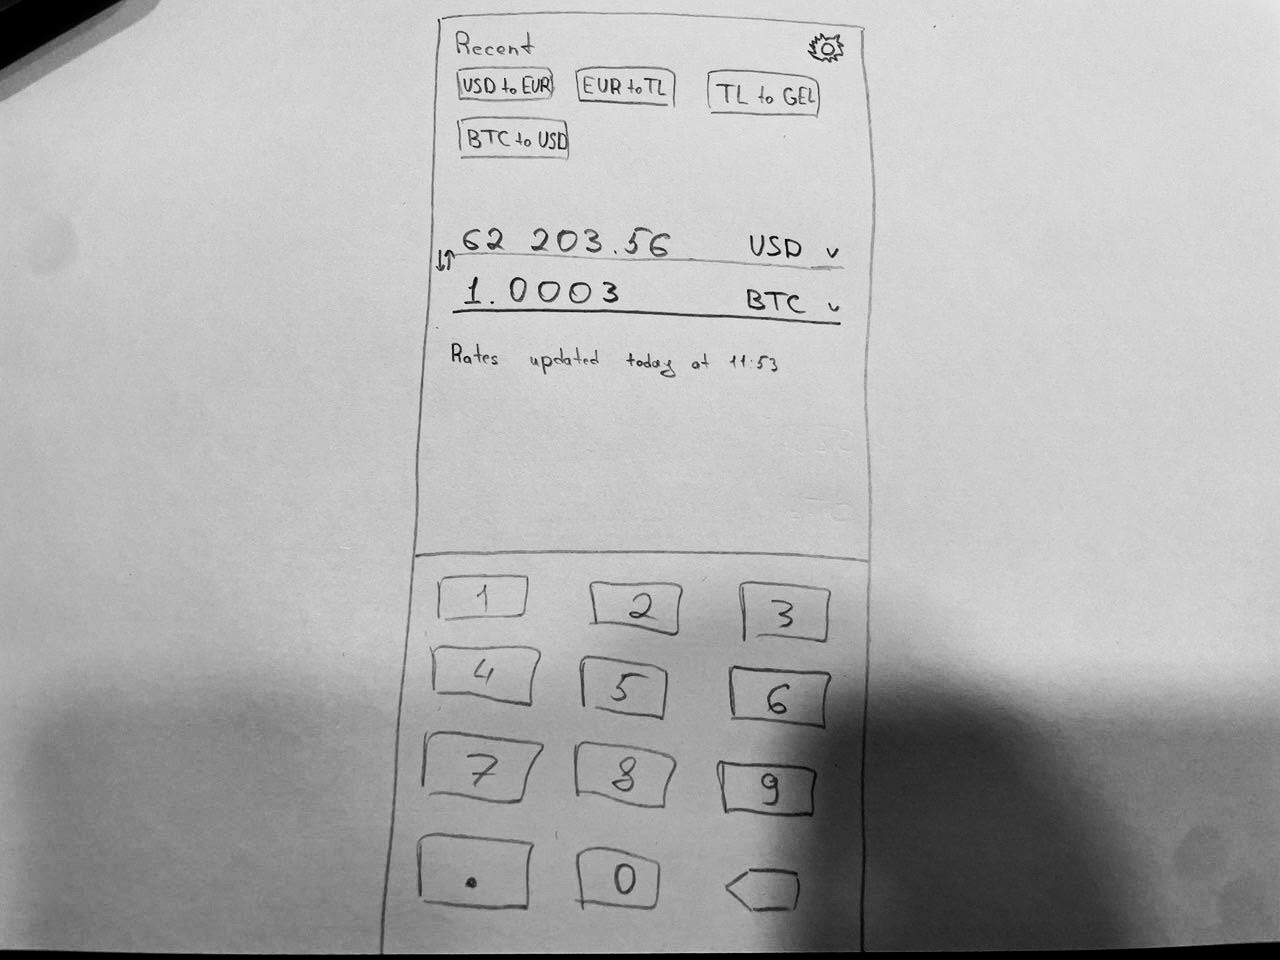 Recent
USD to EUR EUR to TL TL to GEL
BTC to USD
62 203.56 USD
1.0003 BTC
Rates updated today at 11:53
1 2 3
4 5 6
7 8 9
. 0